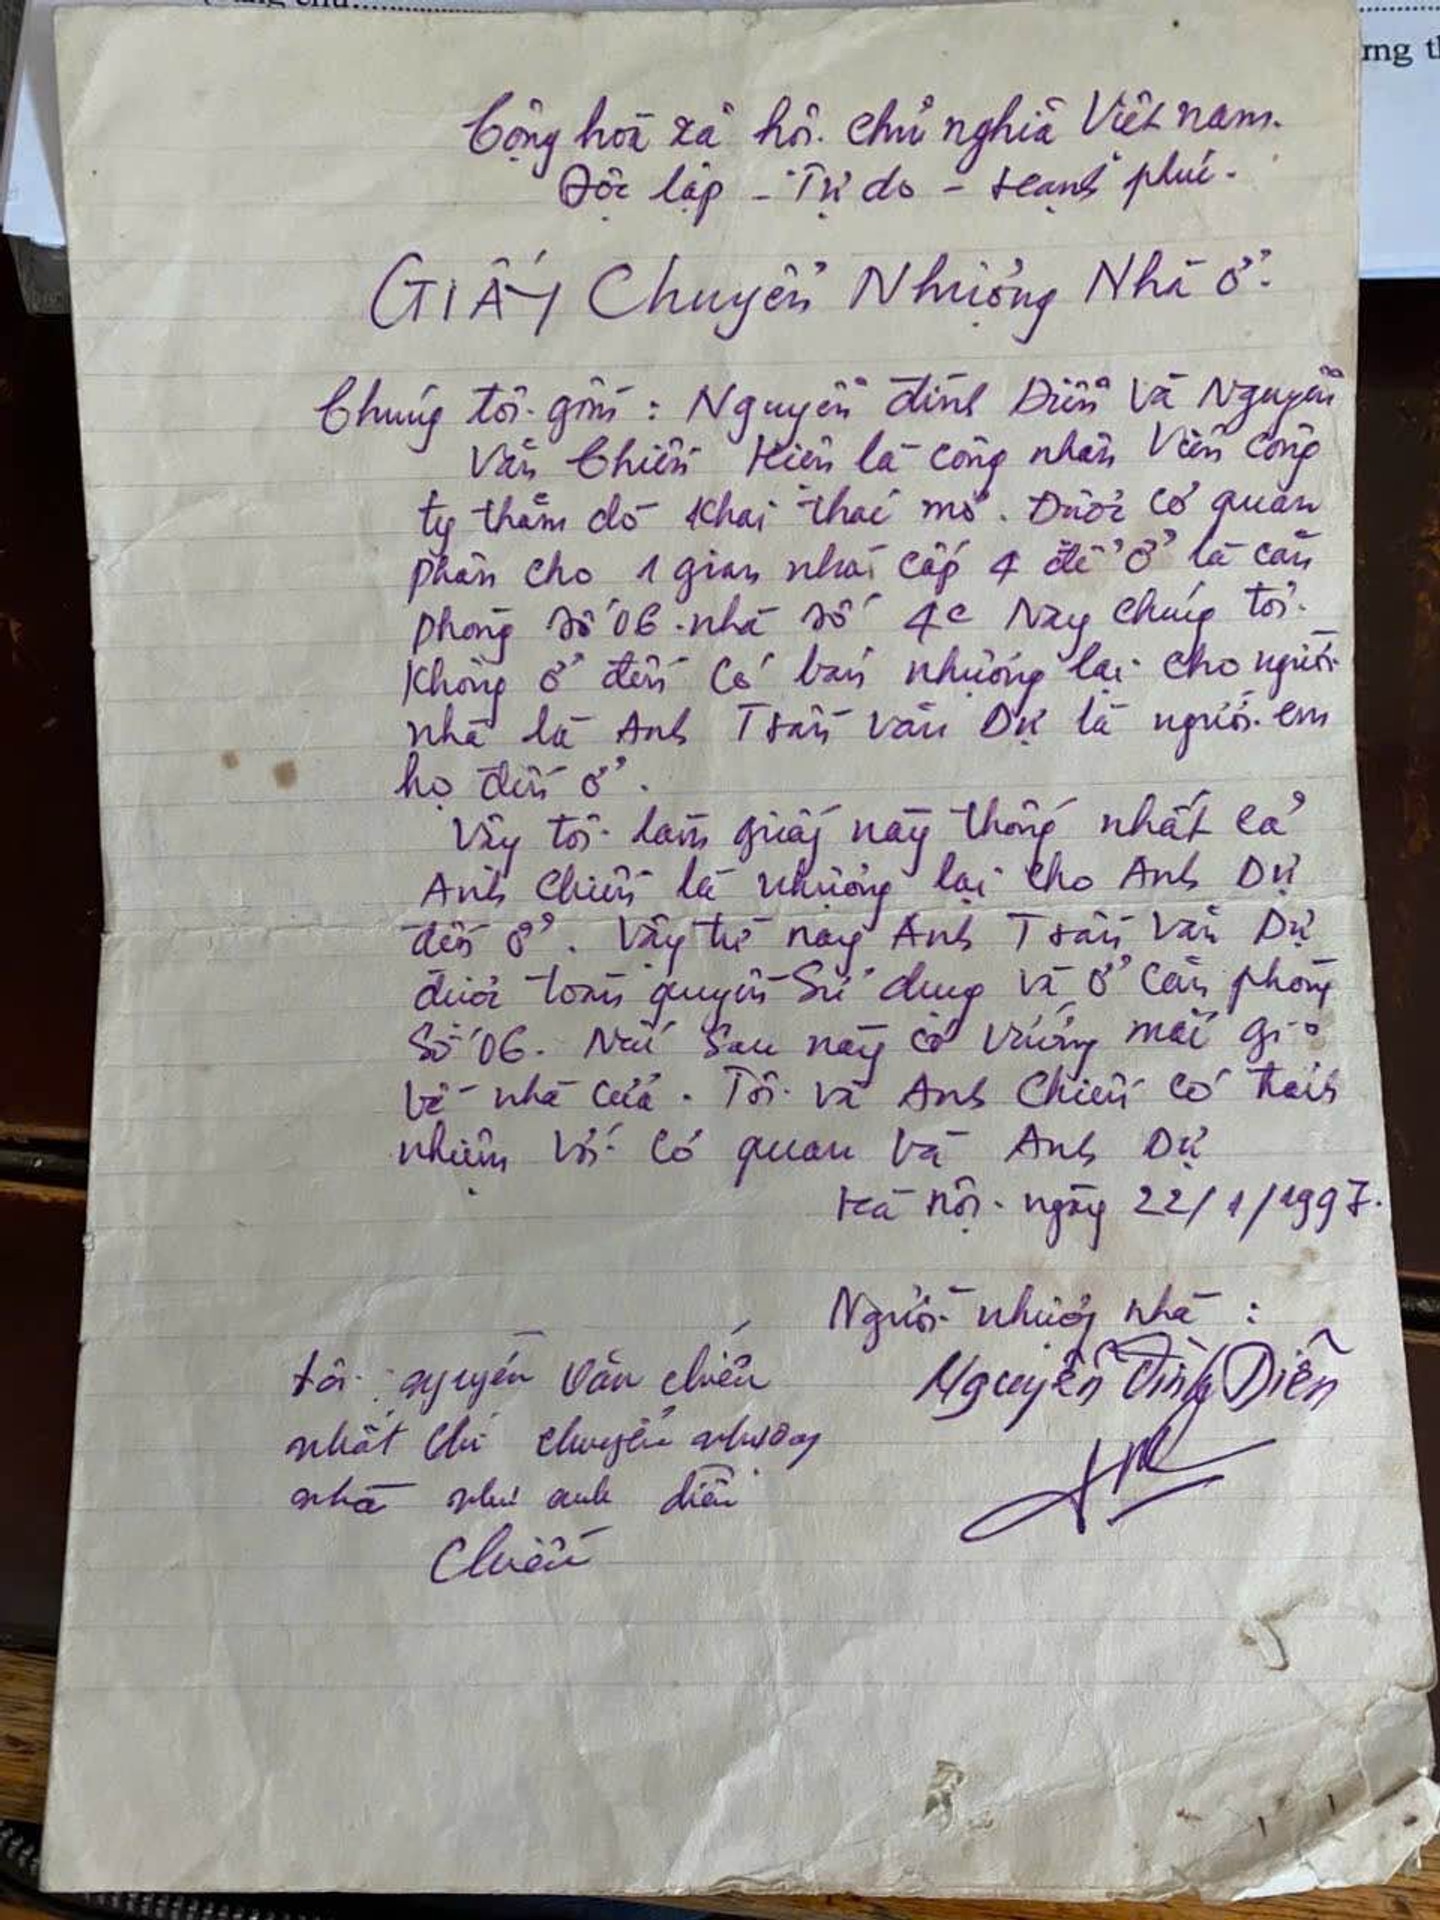 Cộng hoà xã hội chủ nghĩa Việt nam.
Độc lập - Tự do - Hạnh phúc.
GIẤY Chuyển Nhượng Nhà ở.
Chúng tôi gồm: Nguyễn đình Diễn Và Nguyễn
Văn Chiến Hiện là công nhân Viên công
ty thăm dò khai thác mỏ. Được cơ quan
phân cho 1 gian nhà cấp 4 để ở là căn
phòng số 06. nhà số 4c Nay chúng tôi.
Không ở đến có bán nhượng lại cho người
nhà là Anh Trần Văn Dự là người em
họ đến ở.
Vậy tôi làm giấy này thống nhất cả
Anh Chiến là nhượng lại cho Anh Dự
đến ở. Vậy từ nay Anh Trần Văn Dự
được toàn quyền Sử dụng và ở căn phòng
Số 06. Nếu Sau này có Vướng mắc gì
Về nhà cửa. Tôi và Anh Chiến có trách
nhiệm Với cơ quan Và Anh Dự
Hà nội. ngày 22/1/1997.
Người nhượng nhà:
Nguyễn Đình Diễn
tôi: nguyễn Văn chiến
nhất chí chuyển nhượng
nhà như anh diễn
Chiến